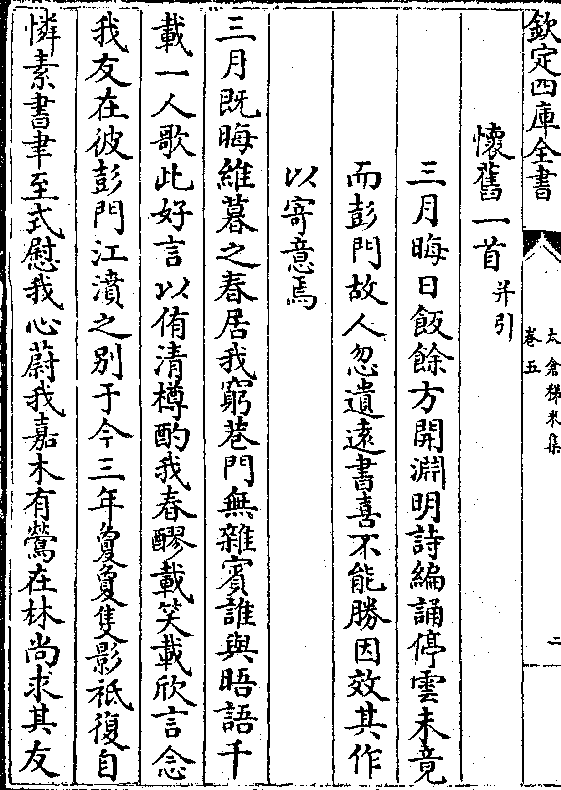 欽定四庫全書
太倉稊米集
卷五
二
懷舊一首并引
三月晦日飯餘方開淵明詩編誦停雲未竟
而彭門故人忽遺遠書喜不能勝因效其作
以寄意焉
三月既晦維暮之春居我窮巷門無雜賓誰與晤語千
載一人歌此好言以侑清樽酌我春醪載笑載欣言念
我友在彼彭門江濆之别于今三年敻敻隻影祇復自
憐素書聿至式慰我心蔚我嘉木有鶯在林尚求其友